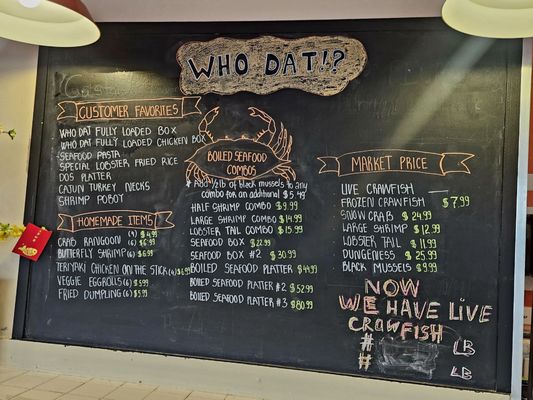 WHO DAT!?
CUSTOMER FAVORITES
WHO DAT FULLY LOADED BOX
WHO DAT FULLY LOADED CHICKEN BOX
SEAFOOD PASTA
SPECIAL LOBSTER, FRIED RICE
DOS PLATTER
CAJUN TURKEY NECKS
SHRIMP POBOY
HOMEMADE ITEMS
CRAB RANGOON (4) $4.99
(6) $6.99
BUTTERFLY SHRIMP (6) $6.99
TERIYAKI CHICKEN ON THE STICK (4) $6.99
VEGGIE EGGROLLS (6) $5.99
FRIED DUMPLING (6) $5.99
BOILED SEAFOOD
COMBOS
*ADD 1/2 lb OF BLACK MUSSELS TO ANY
COMBO FOR AN ADDITIONAL $5.49
HALF SHRIMP COMBO $9.99
LARGE SHRIMP COMBO $14.99
LOBSTER TAIL COMBO $15.99
SEAFOOD BOX $22.99
SEAFOOD BOX #2 $30.99
BOILED SEAFOOD PLATTER $44.99
BOILED SEAFOOD PLATTER #2 $52.99
BOILED SEAFOOD PLATTER #3 $80.99
MARKET PRICE
LIVE CRAWFISH
FROZEN CRAWFISH $7.99
SNOW CRAB $24.99
LARGE SHRIMP $12.99
LOBSTER TAIL $11.99
DUNGENESS $25.99
BLACK MUSSELS $9.99
NOW
WE HAVE LIVE
CRAWFISH
# LB
# LB